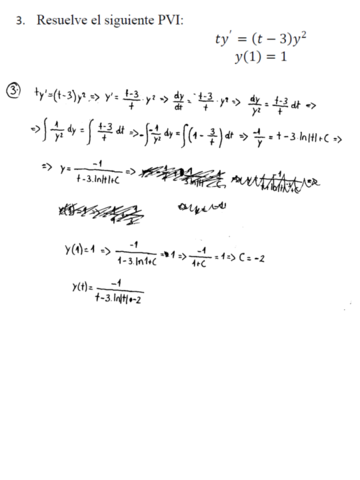 3. Resuelve el siguiente PVI:
ty' = (t − 3)y²
y(1) = 1
③ ty'=(t-3)y² => y'= t-3/t · y² => dy/dt = t-3/t · y² => dy/y² = t-3/t dt =>
=> ∫ 1/y² dy = ∫ t-3/t dt => -∫ -1/y² dy = ∫(1 - 3/t) dt => -1/y = t-3·ln|t|+C =>
=> y = -1/t-3·ln|t|+C =>
y(1)=1 => -1/1-3·ln1+C = 1 => -1/1+C = 1 => C = -2
y(t) = -1/t-3·ln|t|-2